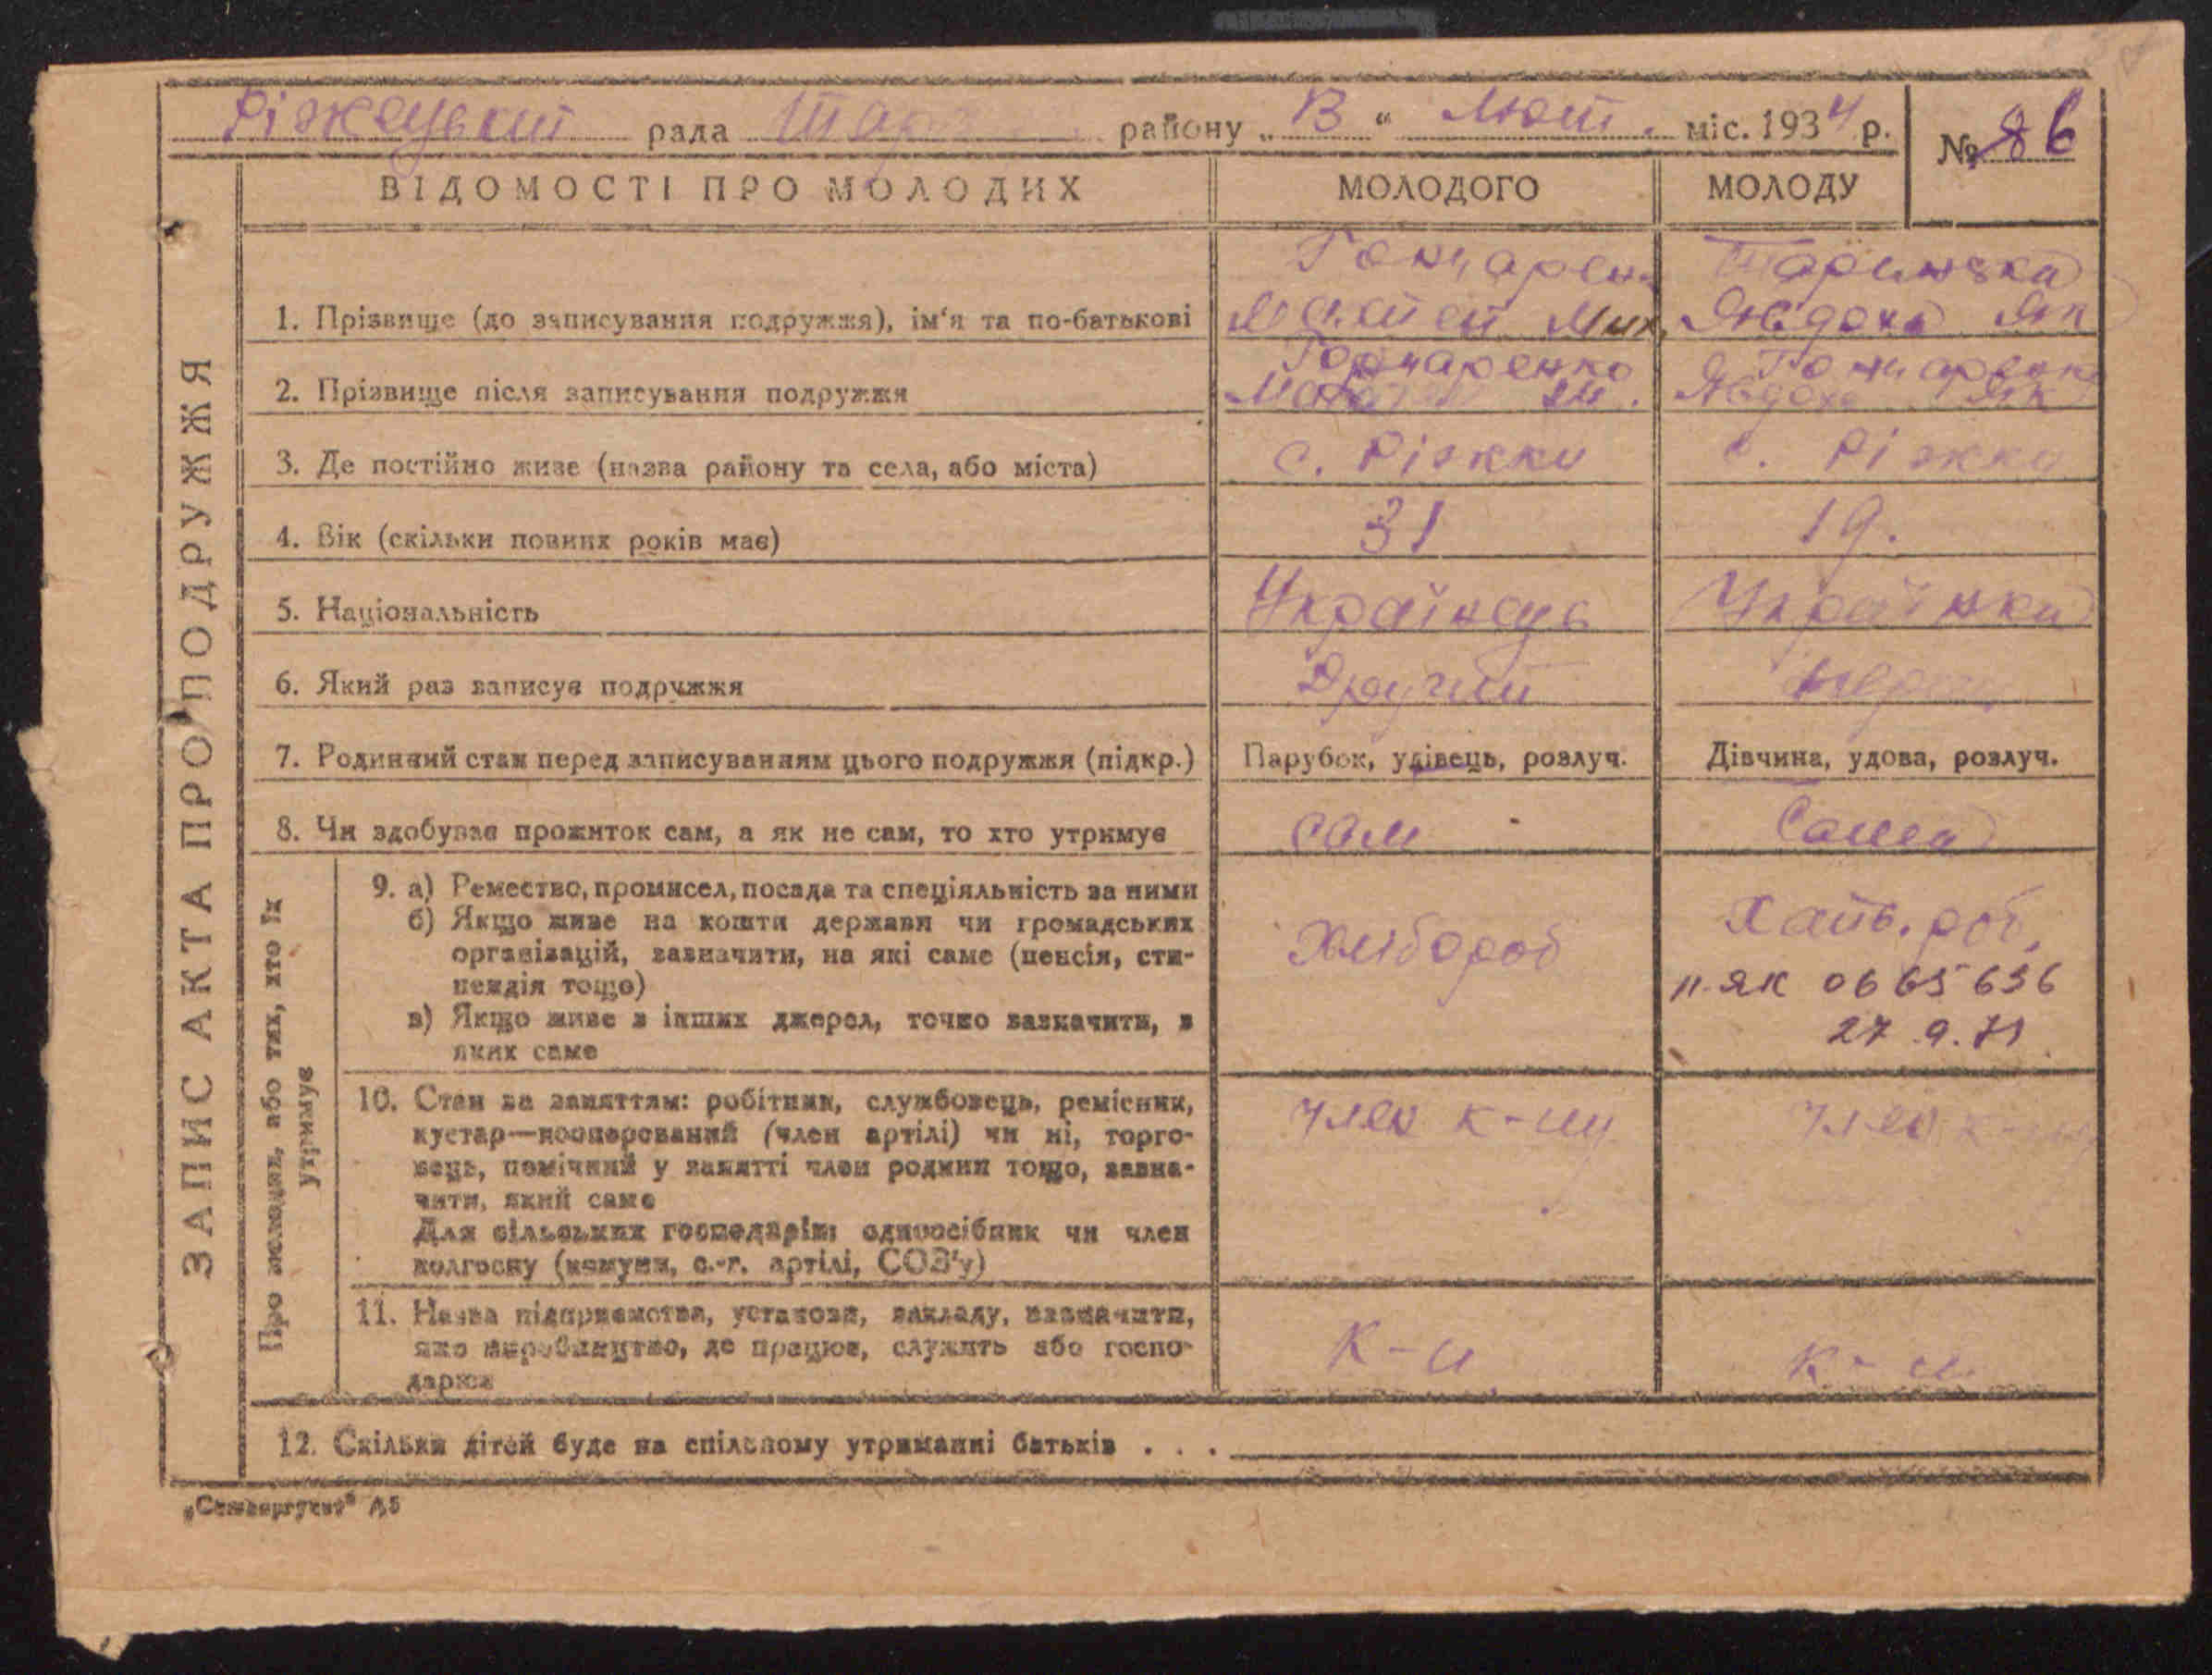 Ріжецький рада району „ 13 “ Лют. міс. 1934 р.
№ 86
ВІДОМОСТІ ПРО МОЛОДИХ МОЛОДОГО МОЛОДУ
ЗАПИС АКТА ПРО ПОДРУЖЖЯ
Гончарен
1. Прізвище (до записування подружжя), ім‘я та по-батькові Мих. Явдоха Як
Гончаренко Гончаренк
2. Прізвище після записування подружжя М. Явдоха Як
3. Де постійно живе (назва району та села, або міста) с. Ріжки с. Ріжки
4. Вік (скільки повних років має) 31 19.
5. Національність Українець Українка
6. Який раз записує подружжя Другий
7. Родинний стан перед записуванням цього подружжя (підкр.) Парубок, удівець, розлуч. Дівчина, удова, розлуч.
8. Чи здобуває прожиток сам, а як не сам, то хто утримує сам Сама
Про молодих, або тих, хто їх
утримує
9. а) Ремество, промисел, посада та спеціяльність за ними
б) Якщо живе на кошти держави чи громадських
організацій, зазначити, на які саме (пенсія, сти-
пендія тощо)
в) Якщо живе з інших джерел, точно зазначити, з
яких саме
Хлібороб
роб.
п-ЯК 0665636
27.9.71
10. Стан за заняттям: робітник, службовець, ремісник,
кустар—кооперований (член артілі) чи ні, торго-
вець, помічний у занятті член родини тощо, зазна-
чити, який саме
Для сільських господарів: одноосібник чи член
колгоспу (комуни, с.-г. артілі, СОЗ‘у)
член к-му член
11. Назва підприємства, установи, закладу, зазначити,
яке виробництво, де працює, служить або госпо-
дарює
12. Скільки дітей буде на спільному утриманні батьків . . .